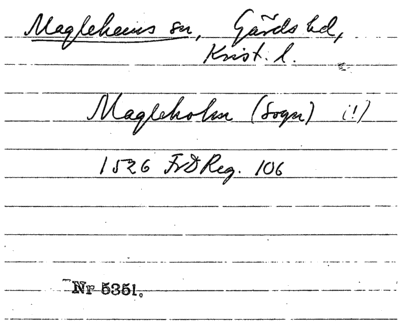 Maglehems sn, Gärds hd,
Krist. l.
Magleholm (Sogn) (!)
1526 FrDReg. 106
Nr 5351.